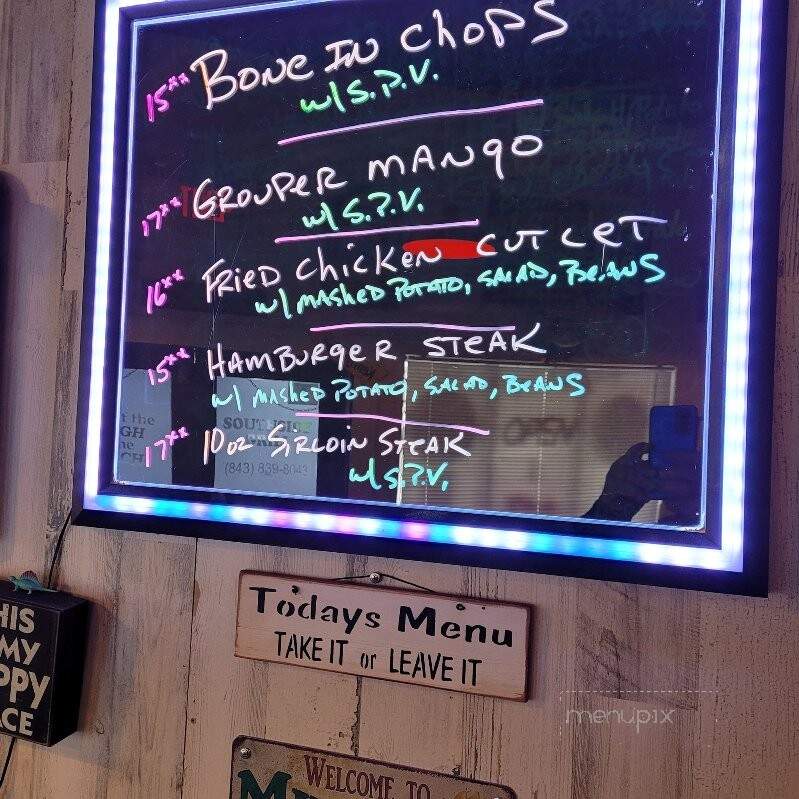 15** BONE IN CHOPS
w/ S.P.V.
17** GROUPER MANGO
w/ S.P.V.
16** FRIED CHICKEN CUTLET
w/ MASHED POTATO, SALAD, BEANS
15** HAMBURGER STEAK
w/ MASHED POTATO, SALAD, BEANS
17** 10oz SIRLOIN STEAK
w/ S.P.V.
(843) 839-8043
Todays Menu
TAKE IT or LEAVE IT
HIS
MY
PPY
CE
menupix
WELCOME TO